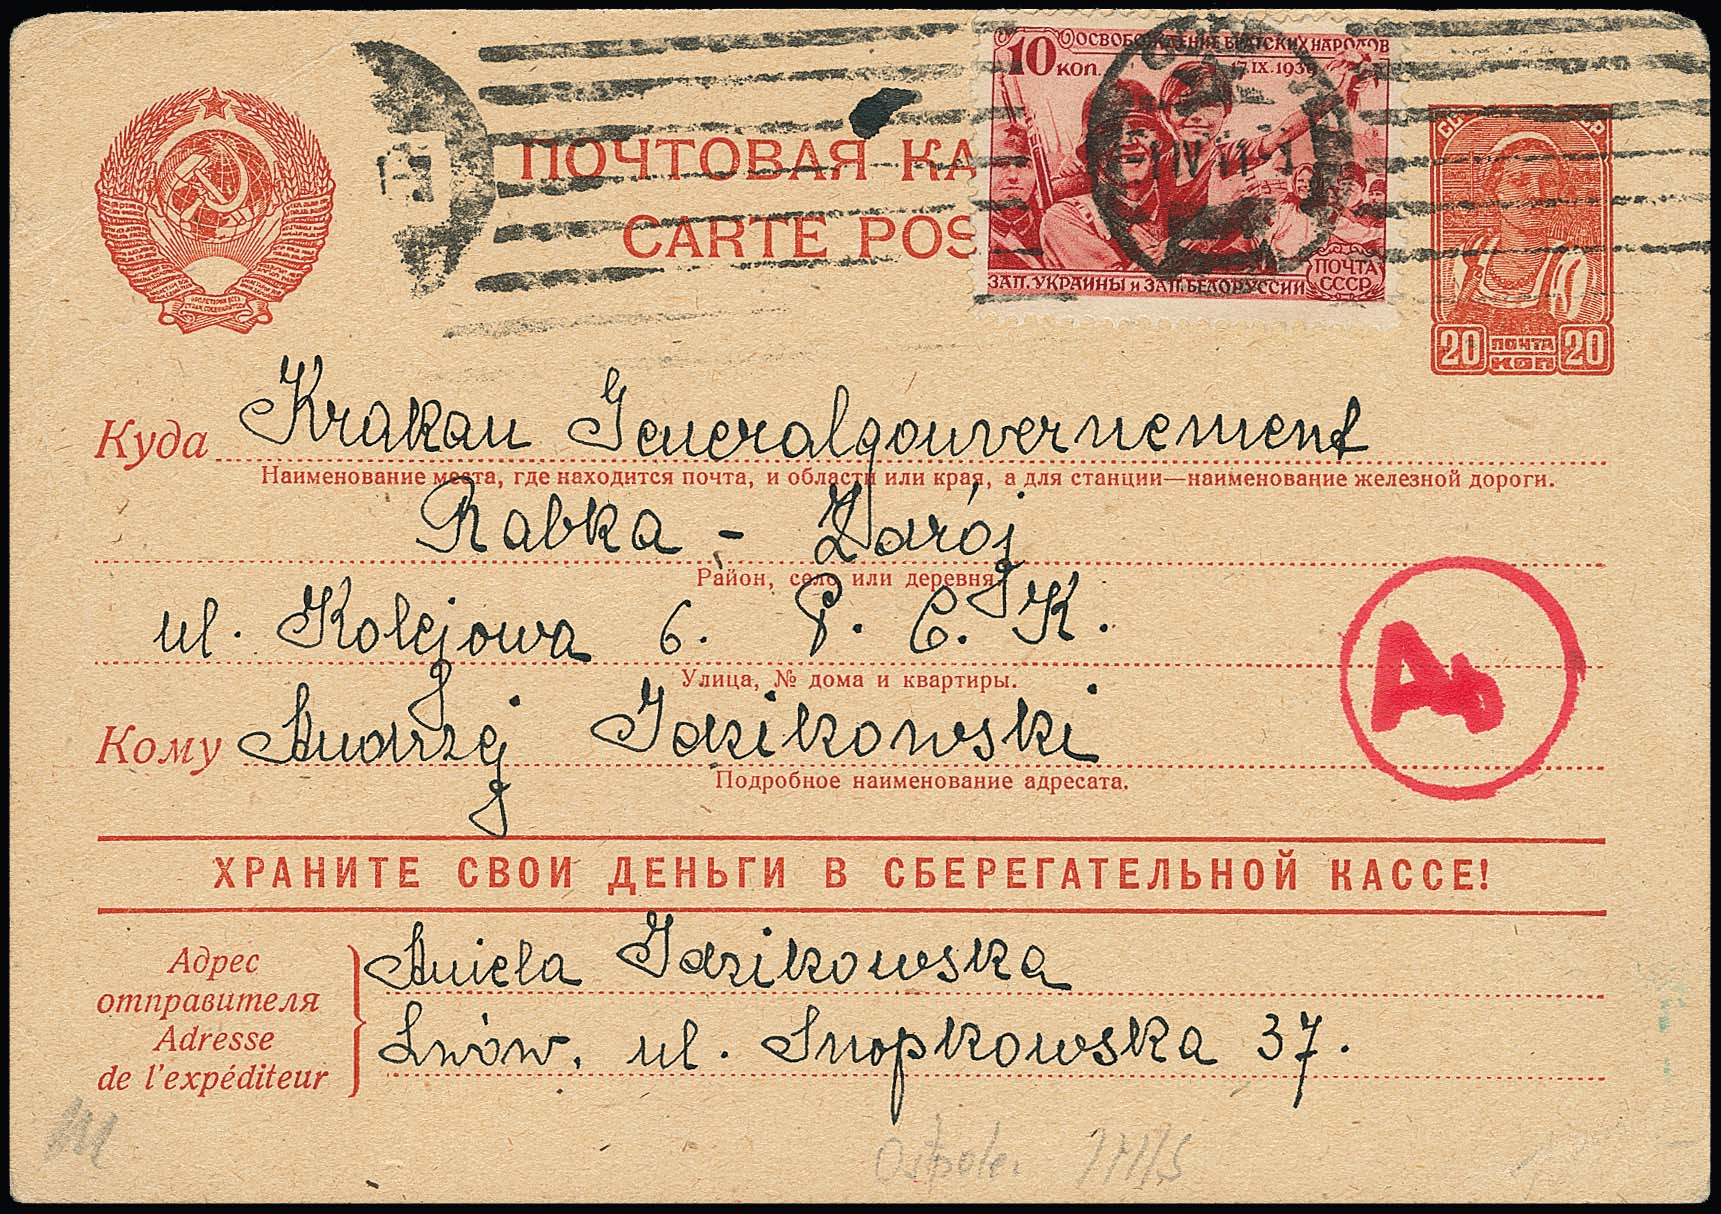 10 коп. ОСВОБОЖДЕНИЕ БРАТСКИХ НАРОДОВ
17.IX.1939
ПОЧТОВАЯ КА
CARTE POS
ПОЧТА
СССР
ЗАП. УКРАИНЫ и ЗАП. БЕЛОРУССИИ
20 ПОЧТА 20
КОП
Куда Krakau Generalgouvernement
Наименование места, где находится почта, и области или края, а для станции—наименование железной дороги.
Rabka - Zdrój
Район, село или деревня.
ul. Kolejowa 6. P. C. K.
Улица, № дома и квартиры.
Кому Andrzej Idzikowski
Подробное наименование адресата.
ХРАНИТЕ СВОИ ДЕНЬГИ В СБЕРЕГАТЕЛЬНОЙ КАССЕ!
Адрес Aniela Idzikowska
отправителя
Adresse Lwów, ul. Snopkowska 37.
de l'expéditeur